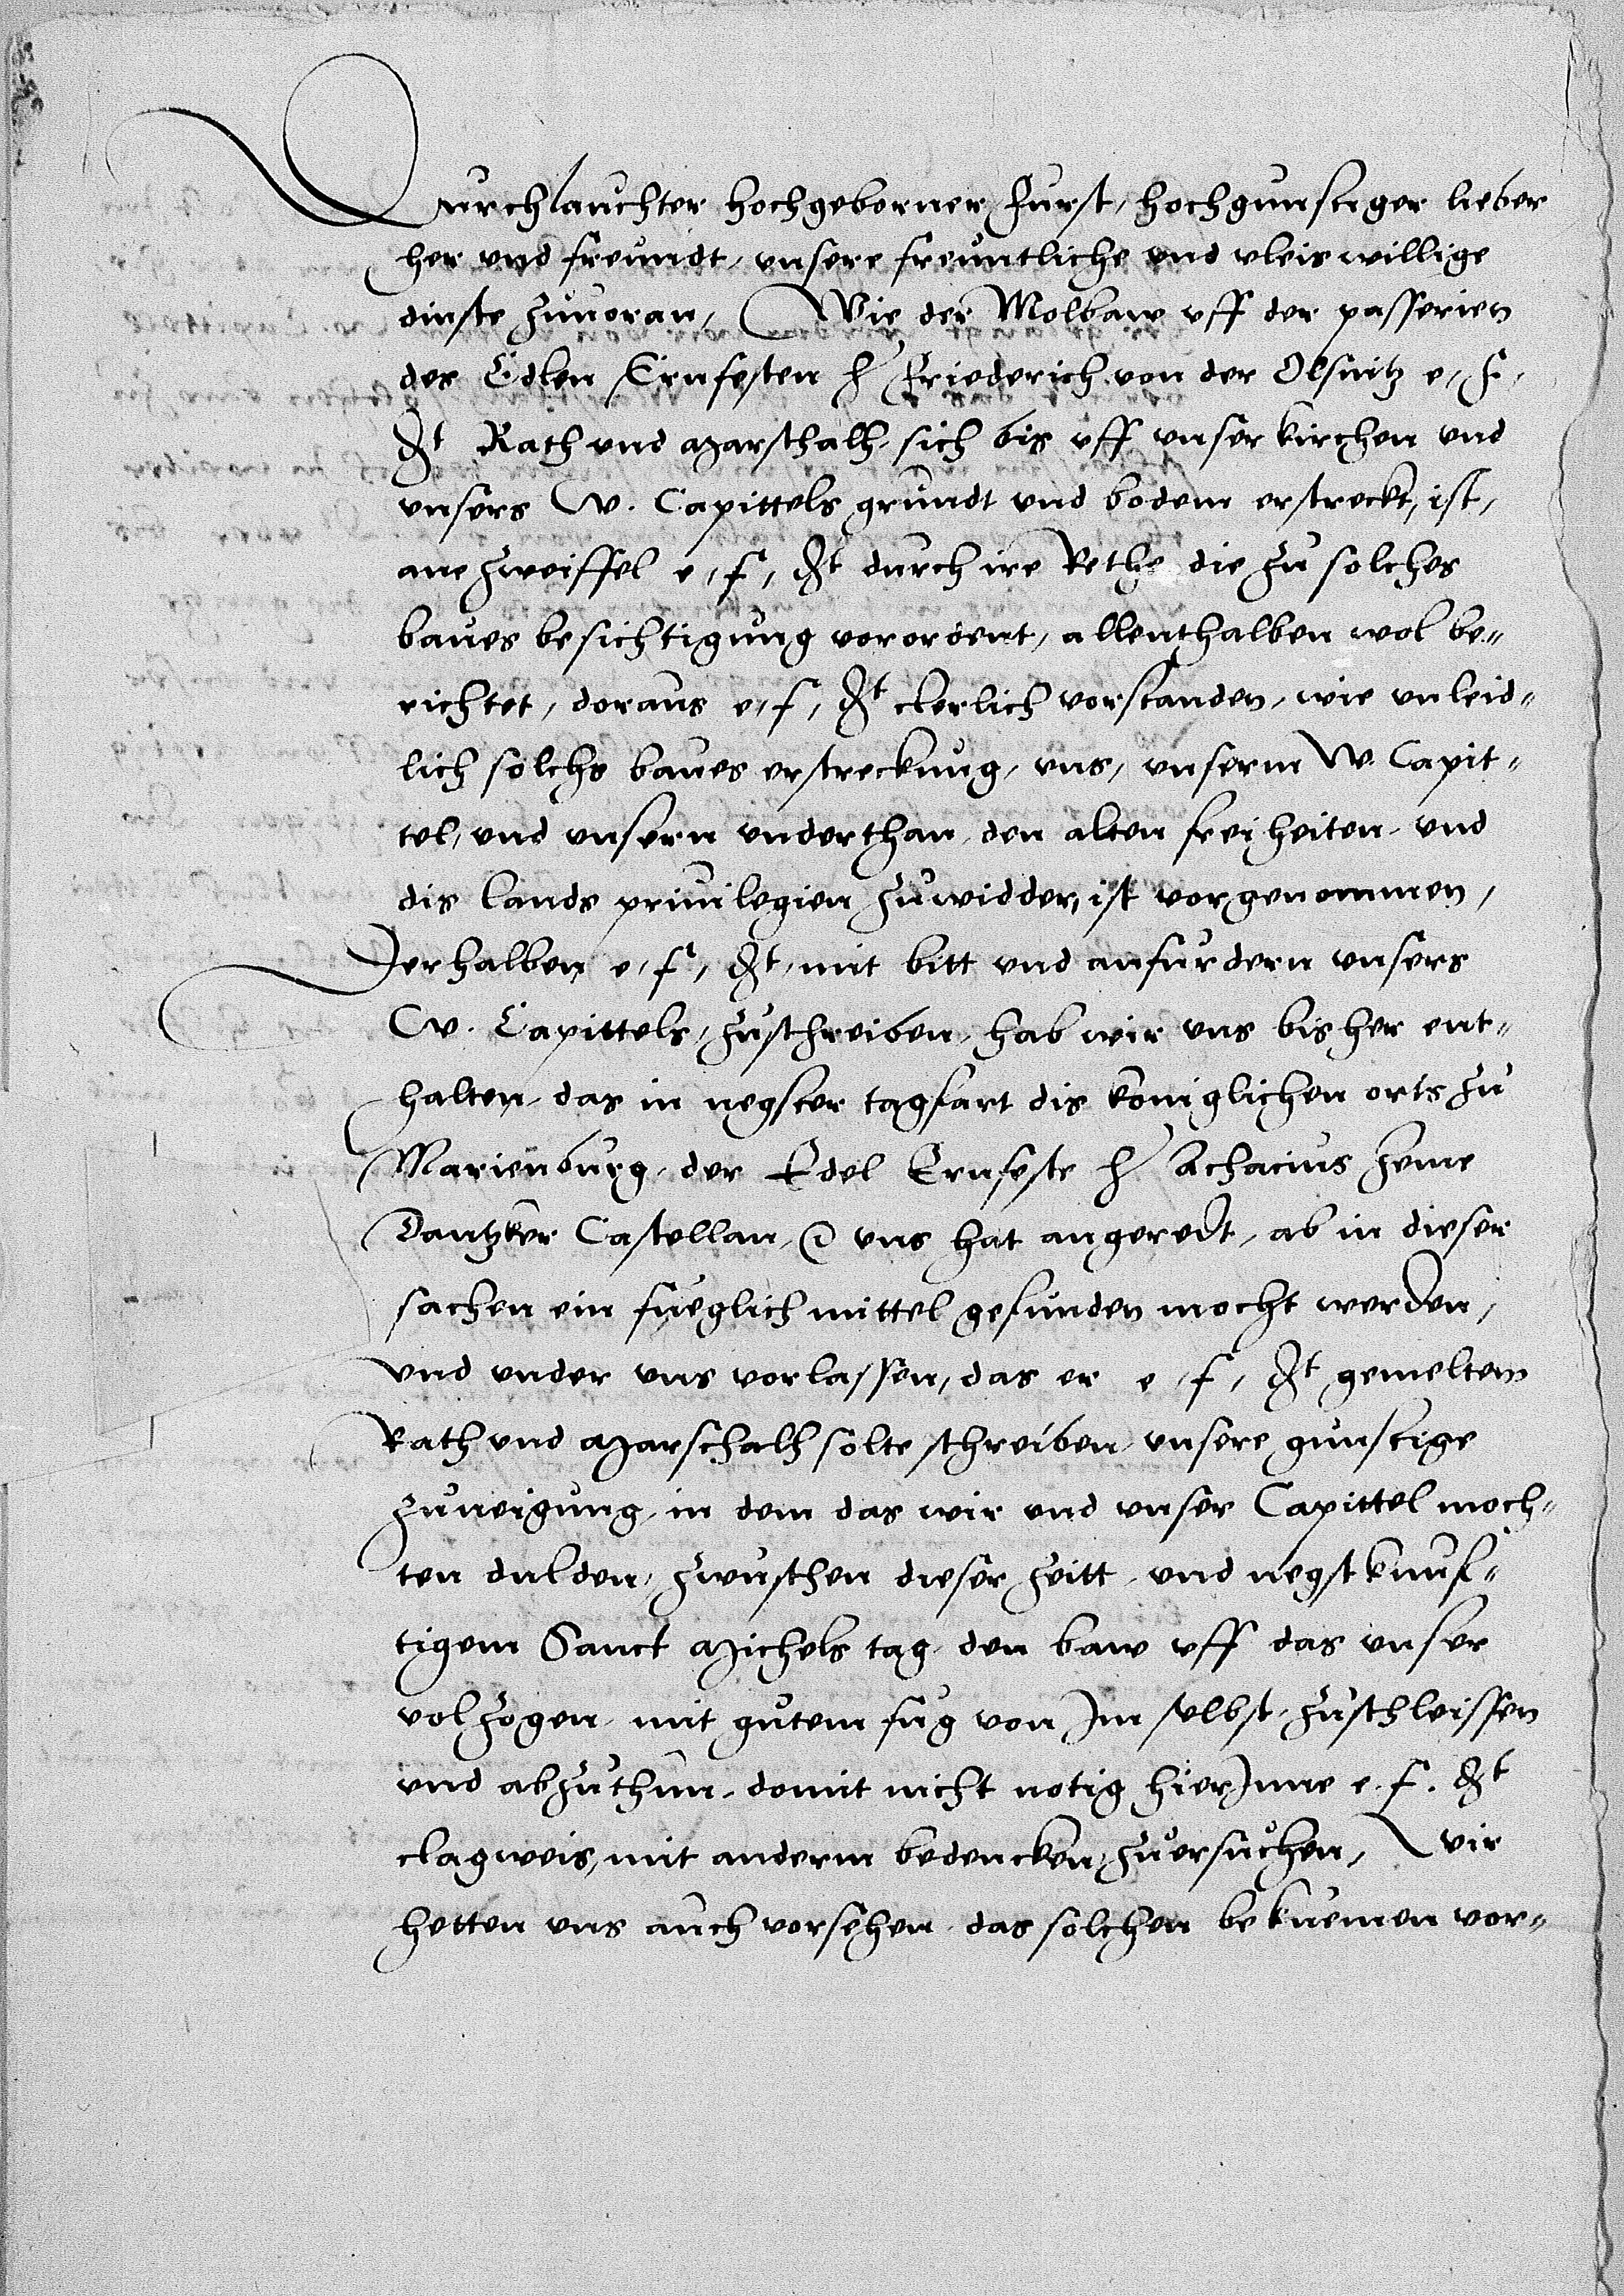 Durchlauchter hochgeborner Furst, hochgunstiger lieber
her vnd freundt, vnsere freuntliche vnd vleis willige
dinste zuuoran, Wie der Molbaw vff der passerien
des Edlen Ernfesten h Friederich von der Olsnitz e, f,
gt Rath vnd Marschalh, sich bis vff vnser kirchen vnd
vnsers W. Capittels grundt vnd bodem erstreckt, ist,
ane zweiffel e, f, gt durch ire Rethe die zu solches
baues besichtigung verordent, allenthalben wol be„
richtet, doraus e, f, gt clerlich vorstanden, wie vnleid„
lich solchs baues erstreckung, vns, vnserm W. Capit„
tel, vnd vnsern vnderthan, den alten freiheiten, vnd
dis lands priuilegien zuwidder, ist vorgenommen,
Derhalben e, f, gt, mit bitt vnd anfurdern vnsers
W. Capittels, zuschreiben, hab wir vns bisher ent„
halten, das in negster tagfart dis koniglichen orts zu
Marienburg, der Edel Ernfeste h Achacius Zeme
Dantzker Castellan, @ vns hat angeredt, ab in dieser
sachen ein fueglich mittel gefunden mocht werden,
vnd vnder vns vorlassen, das er e, f, gt gemeltem
Rath vnd Marschalh solte schreiben, vnsere gunstige
zuneigung, in dem das wir vnd vnser Capittel moch„
ten dulden, zwuschen dieser zeitt, vnd negst kunf„
tigem Sanct Michels tag, den baw vff das vnser
volzogen, mit gutem fug von Jm selbst, zuschleissen
vnd abzuthun, domit nicht notig hierJnne e. f. gt
clagweis, mit anderm bedencken, zuersuchen, Wir
hetten vns auch vorsehen, das solchen bekuemen vor„